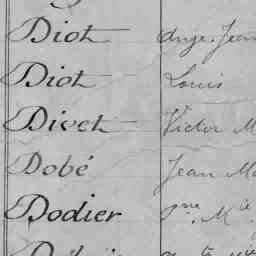 Diot Ange Jean
Diot Louis
Divet Victor M
Dobé Jean Ma
Dodier Pne. Mie